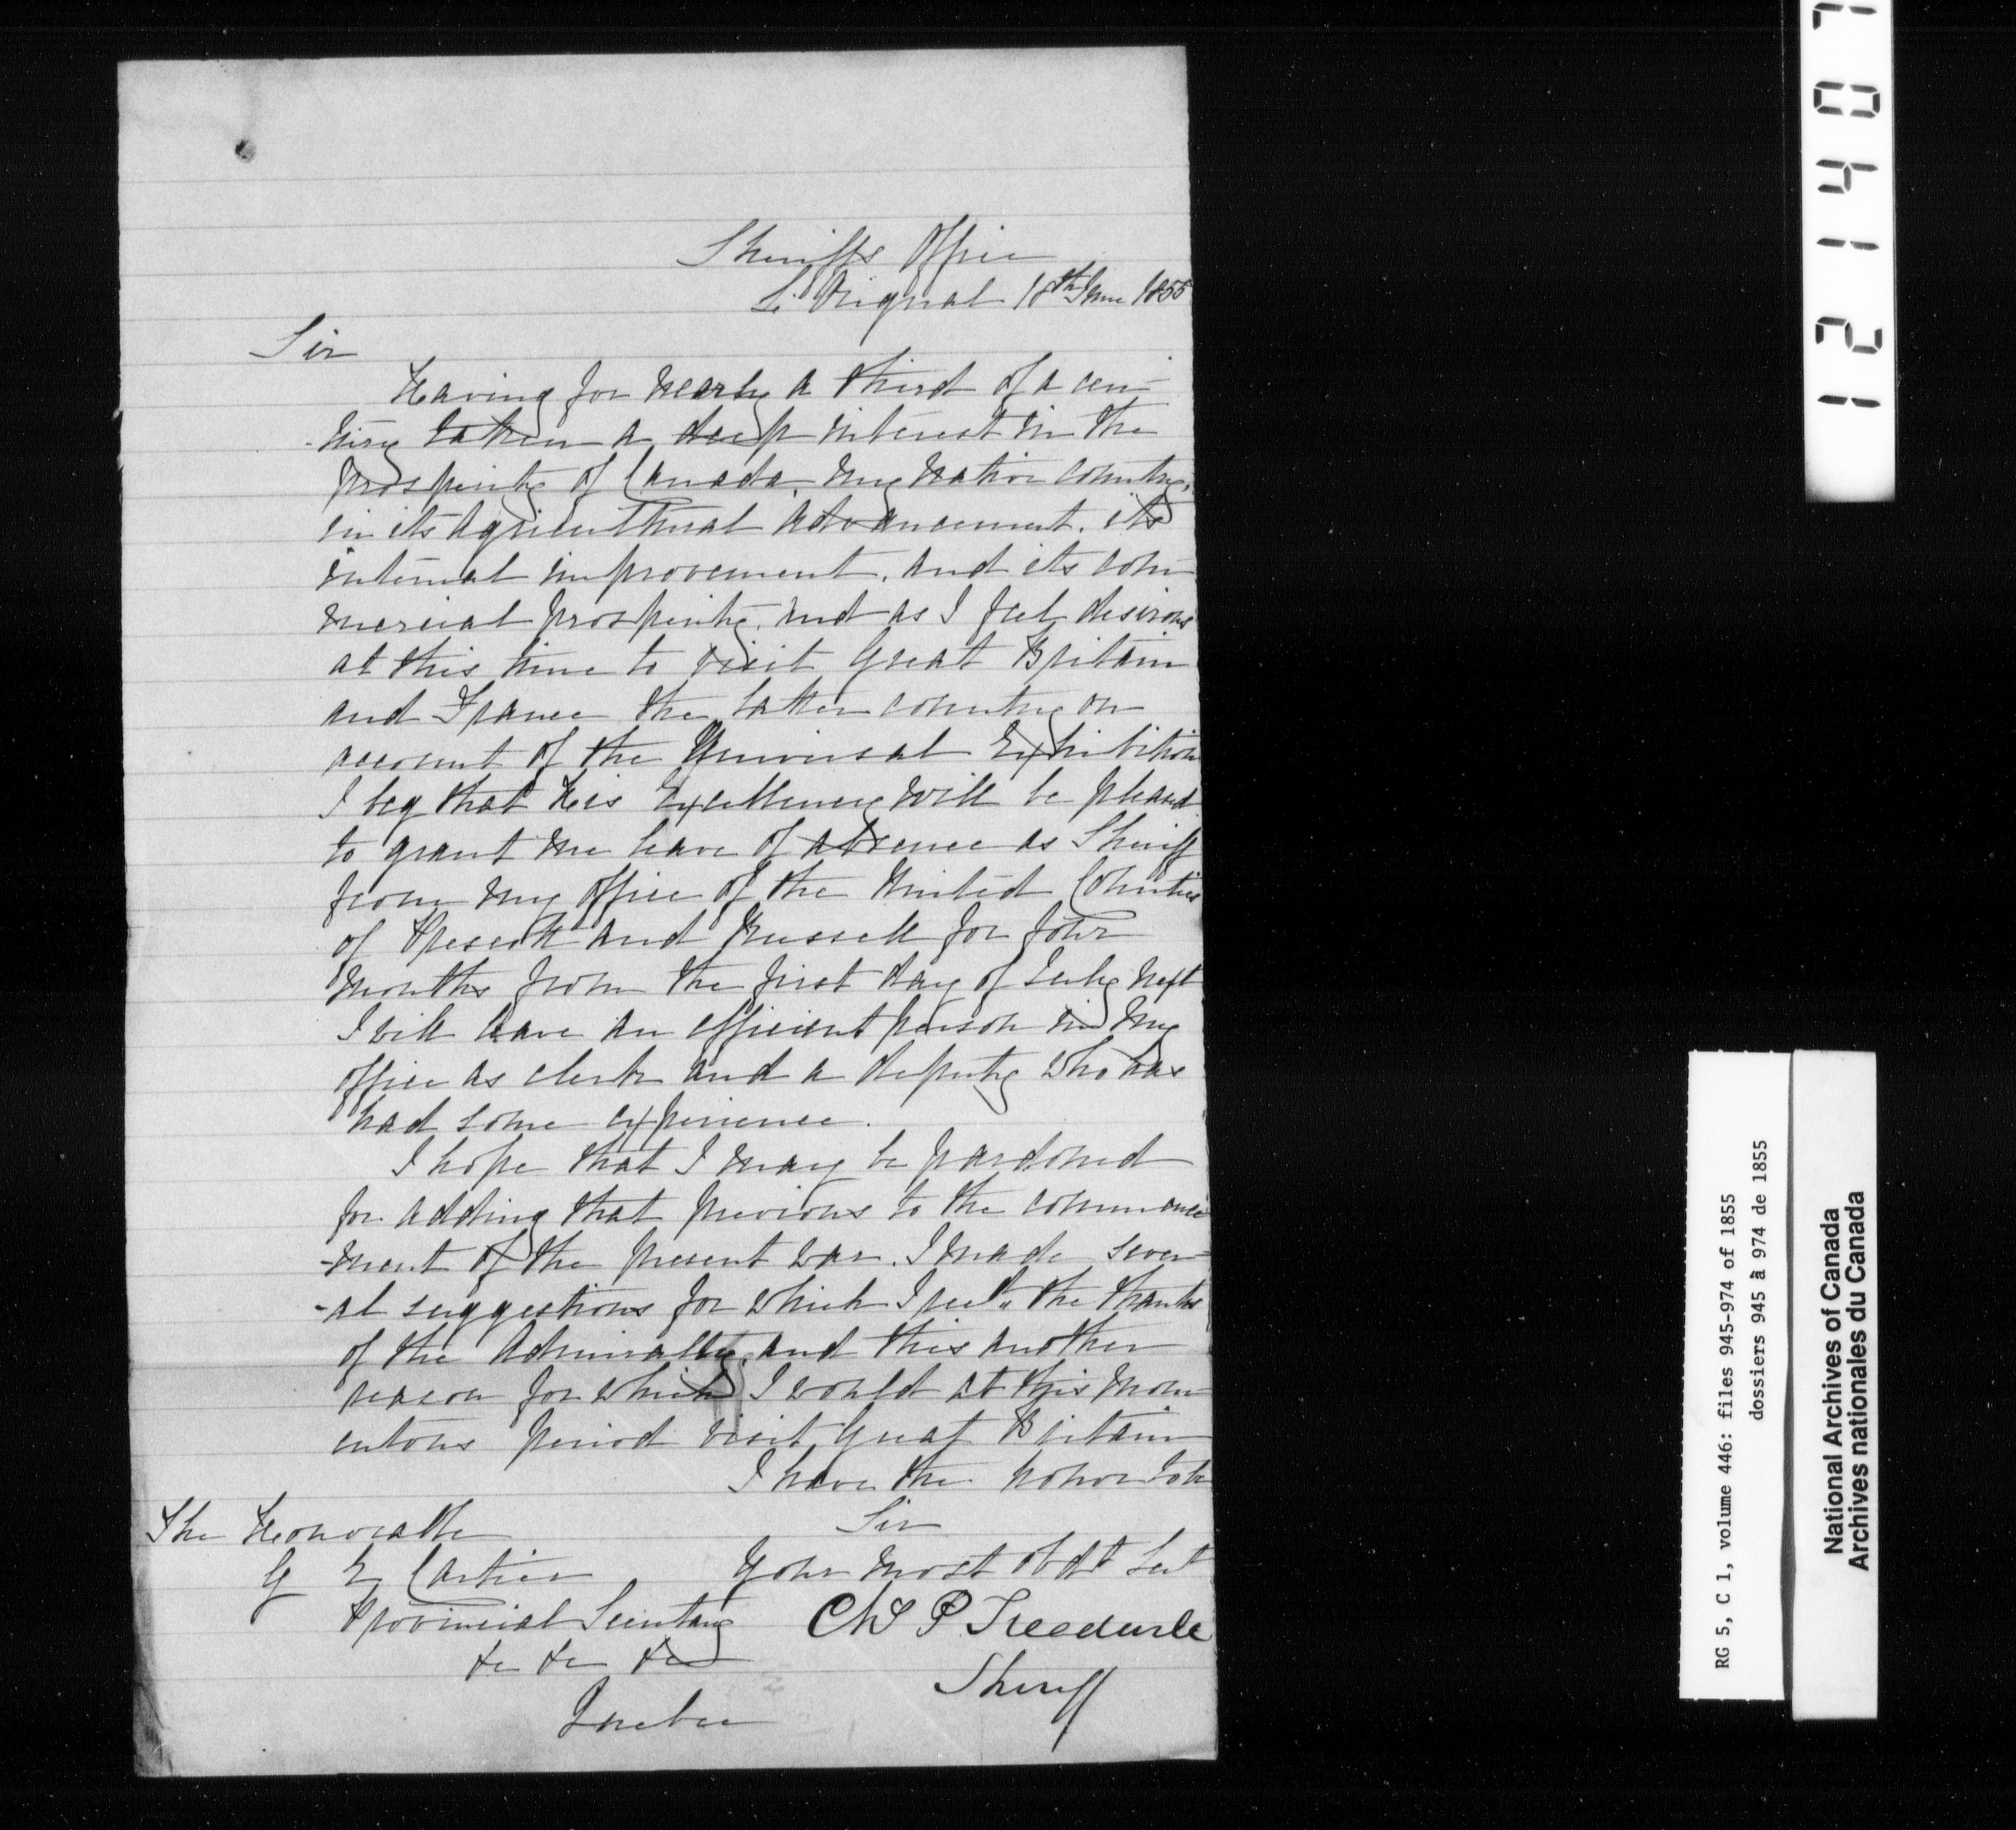 Sheriffs Office
L'Orignal 18th June 1855
Sir
Having for nearly a third of a cen-
-tury taken a deep interest in the
prosperity of Canada, my native country,
in its agricultural advancement, its
internal improvement, and its com-
mercial prosperity, and as I feel desirous
at this time to visit Great Britain
and France the latter country on
account of the Universal Exhibition
I beg that His Excellency will be pleased
to grant me leave of absence as Sheriff
from my office of the United Counties
of Prescott and Russell for four
months from the first day of July next
I will have an efficient person in my
office as clerk and a deputy who has
had some experience.
I hope that I may be pardoned
for adding that previous to the commence
-ment of the present war, I made sever-
-al suggestions for which I recd. the thanks
of the Admiralty, and this another
reason for which I would at this mom-
entous period visit Great Britain
I have the honor to be
Sir
Your most obdt Sert
Chs P Treadwell
Sheriff
The Honorable
G E Cartier
Provincial Secretary
&c &c &c
Quebec
121407
RG 5, C 1, volume 446: files 945-974 of 1855
dossiers 945 à 974 de 1855
National Archives of Canada
Archives nationales du Canada